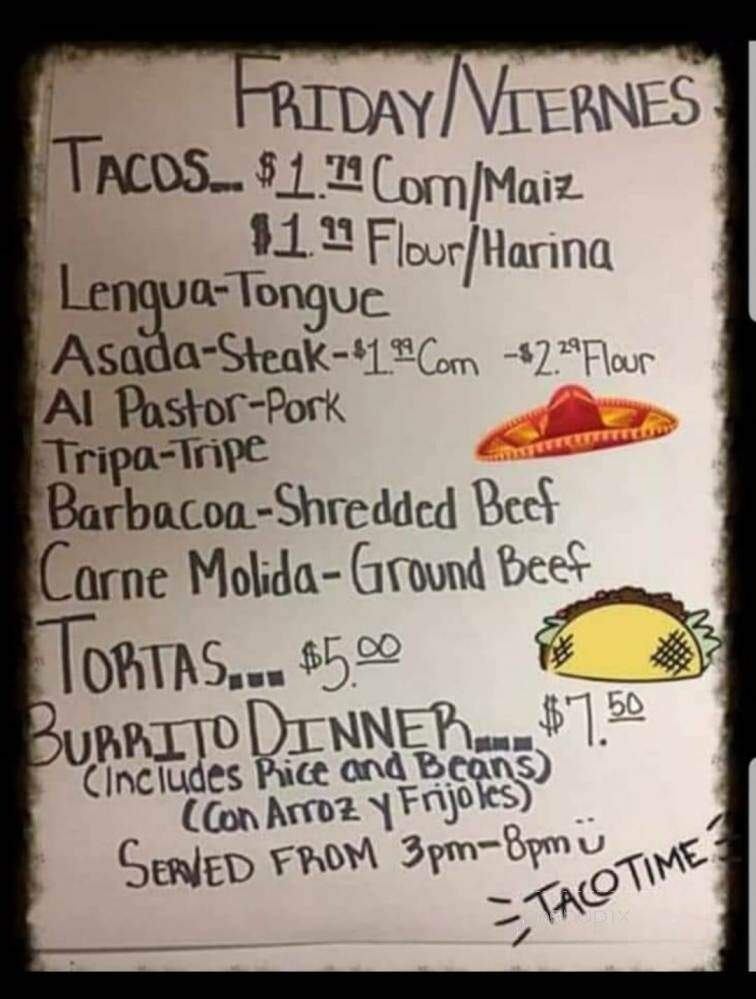 FRIDAY/VIERNES
TACOS... $1.79 Corn/Maiz
$1.99 Flour/Harina
Lengua-Tongue
Asada-Steak-$1.99 Corn -$2.29 Flour
Al Pastor-Pork
Tripa-Tripe
Barbacoa-Shredded Beef
Carne Molida-Ground Beef
TORTAS... $5.00
BURRITO DINNER... $7.50
(Includes Rice and Beans)
(Con Arroz y Frijoles)
SERVED FROM 3pm-8pm ü
TACO TIME